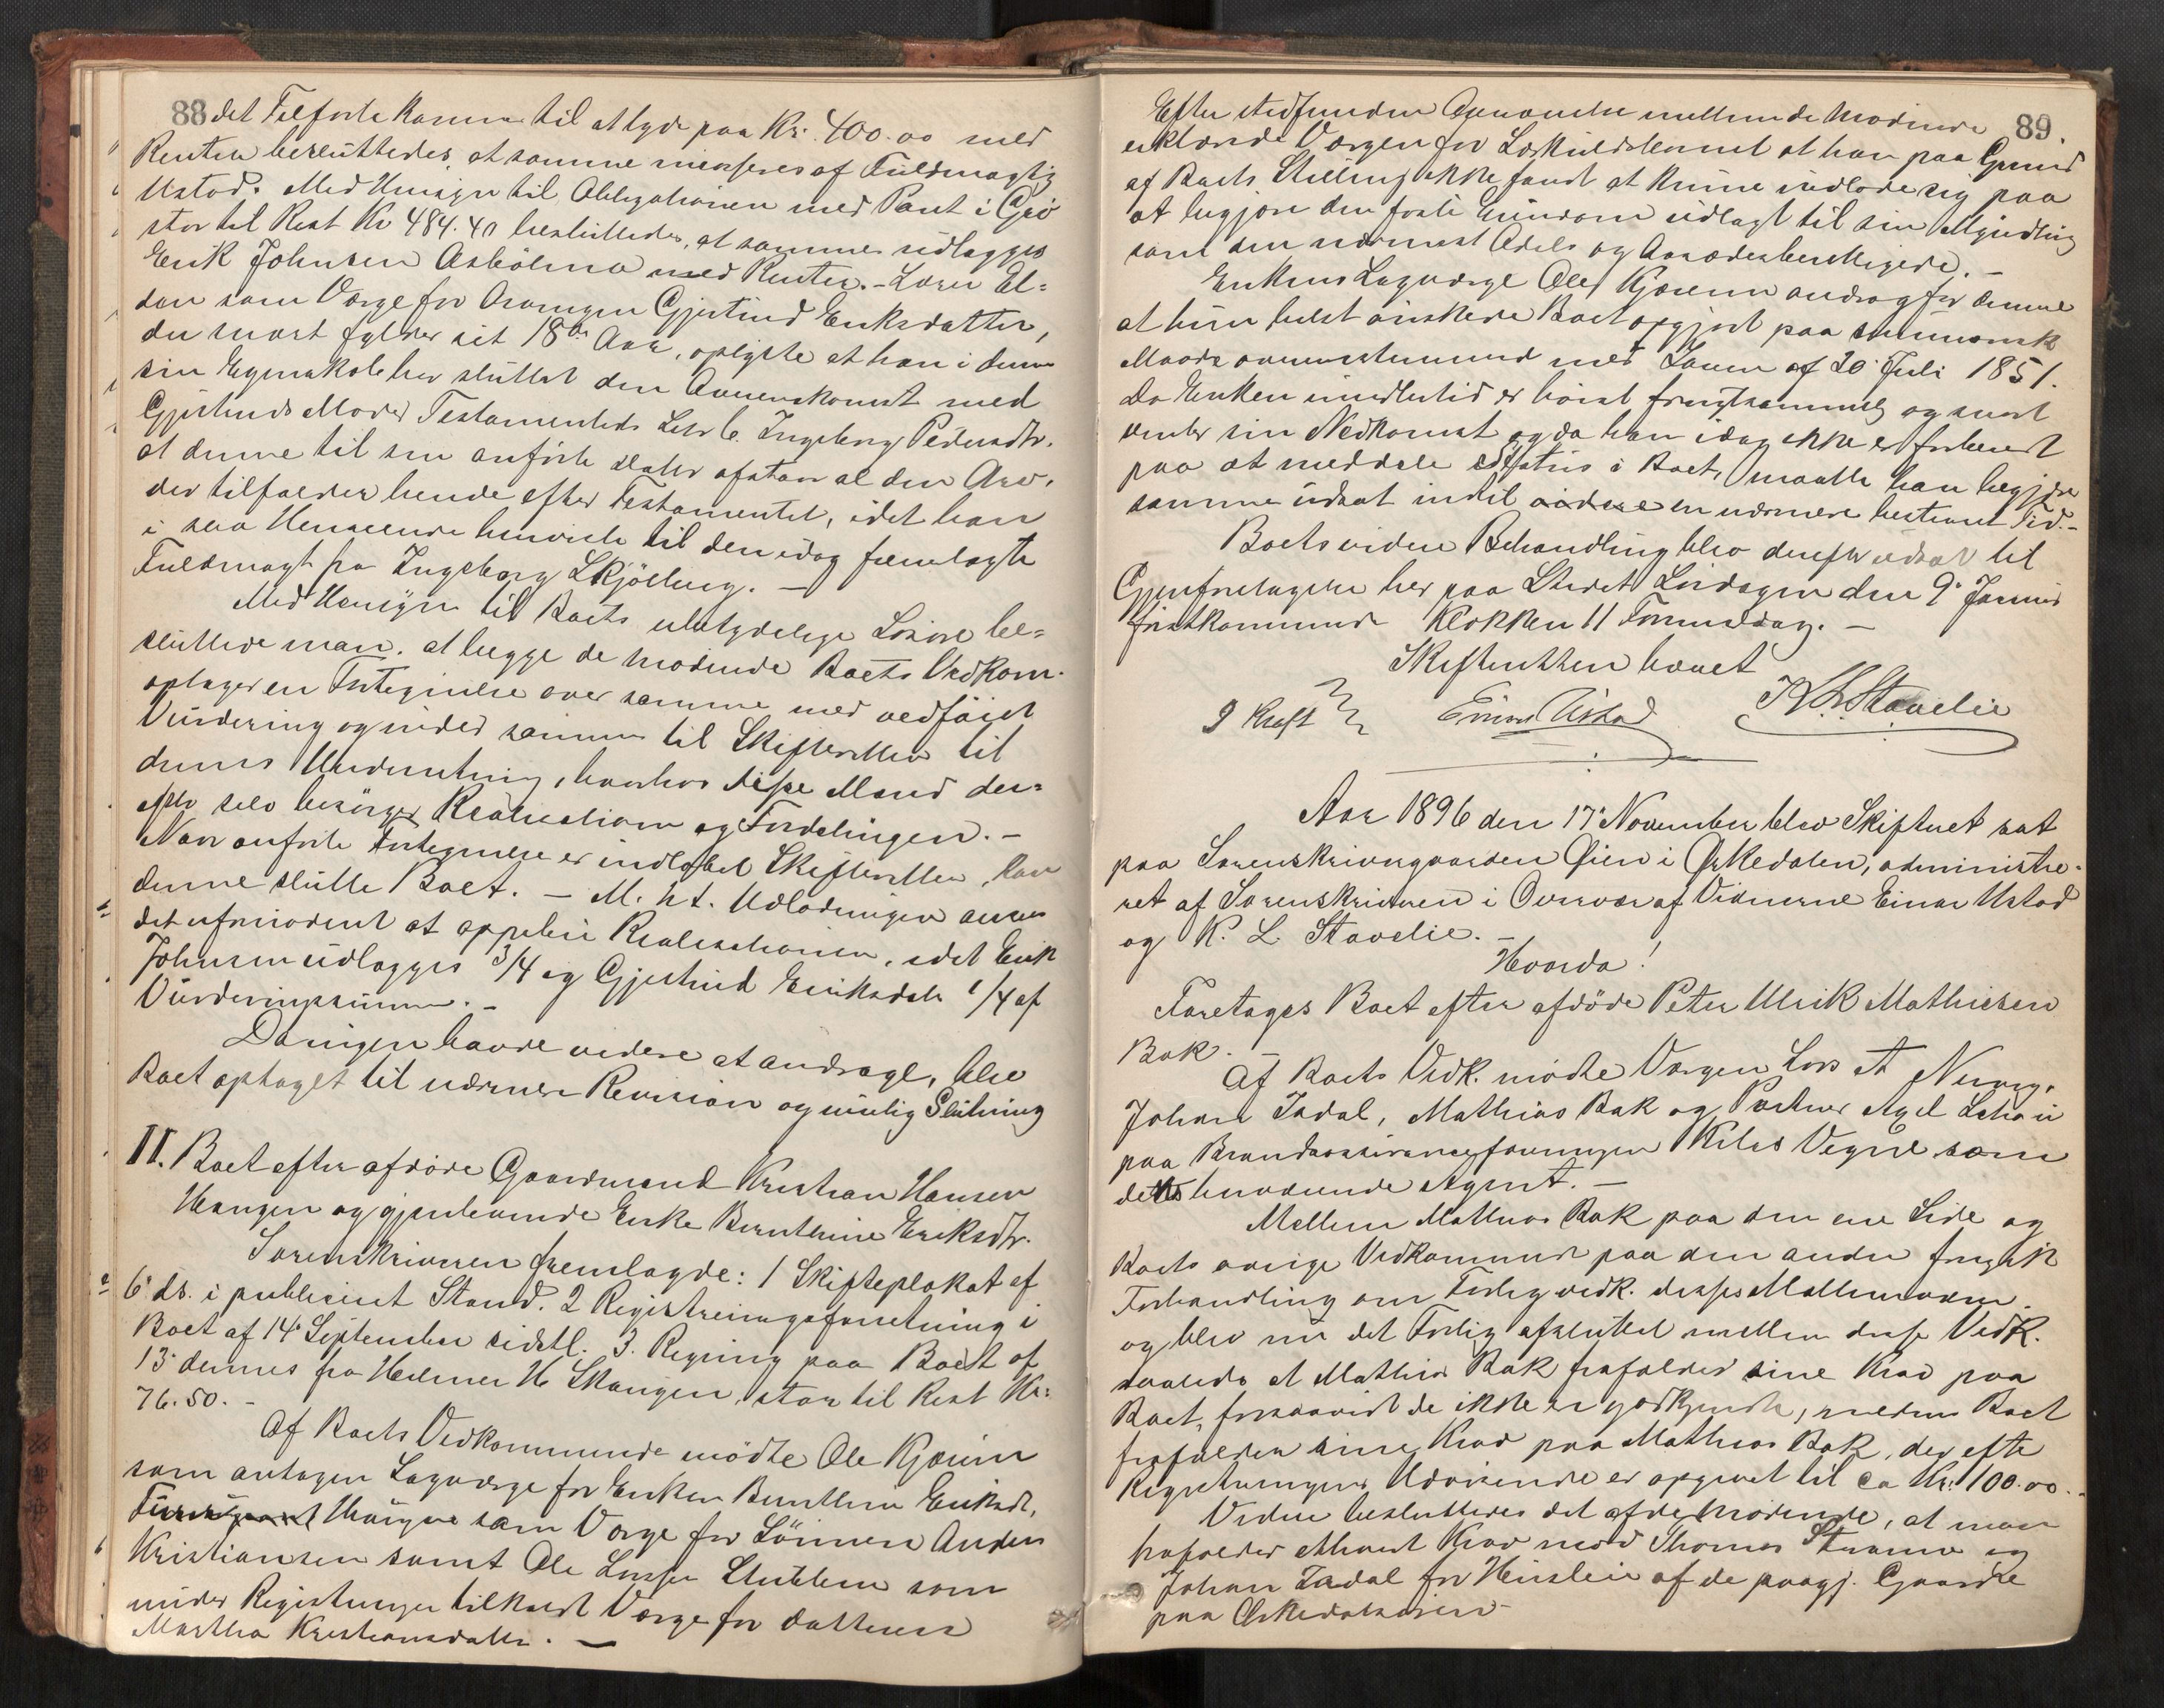 88 det Tilførte kommer til at lyde paa Kr. 400.00 med
Renter besluttedes at samme incasseres af Fuldmægtig
Ustad. Med Hensyn til Obligationen med Pant i
stor til Rest Kr 484.40 besluttedes, at samme udlægges
Erik Johnsen Asbölmo med Renter. - Loren El-
den som Værge for Arvingen Gjertrud Eriksdatter,
der snart fylder sit 18de Aar, oplyste at han i denne
sin Egenskab har sluttet den Overenskomst med
Gjertruds Moder Testamentets Litr b. Ingeborg Pedersdtr.
at denne til sin anførte Datter afstaar al den Arv,
der tilfalder hende efter Testamentet, idet han
i saa Henseende henviste til den idag fremlagte
Fuldmagt fra Ingeborg Skjølberg. -
Med Hensyn til Boets ubetydelige Løsøre be-
sluttede man, at begge de mødende Boets Vedkom.
optager en Fortegnelse over samme med vedføiet
Vurdering og inder samme til Skifteretten til
dennes Underretning, hvorhos disse Mænd der-
efter selv besørger Realisationen og Fordelingen. -
Naar anførte Fortegnelse er indløbet Skifteretten, kan
denne slutte Boet. - M. H. t. Udlodningen ansees
det ufornödent at oppebie Realisationen, idet Erik
Johnsen udlægges 3/4 og Gjertrud Eriksdatr 1/4 af
Vurderingssummen. -
Da ingen havde videre at andrage, blev
Boet optaget til nærmere Revision og mulig Slutning
II. Boet efter afdøde Gaardmand Kristian Hansen
Haugen og gjenlevende Enke Bernthine Eriksdtr.
Sorenskriveren fremlagde: 1 Skifteplakat af
6' ds. i publiceret Stand. 2 Registreringsforretning i
Boet af 14' September sidstl. 3. Regning paa Boet af
13' dennes fra Helmer H Skaugen, stor til Rest Kr:
76.50. -
Af Boets Vedkommende mødte Ole Kjøren
som antagen Lagværge for Enken Bernthine Eriksdt,
Haugen som Værge for Sønnen Anders
Kristiansen samt Ole Larsen Stubben som
under Registringen tilkaldt Værge for datteren
Martha Kristiansdatter. -
89.
Efter stedfunden Overveielse mellem de Mødende
erklærede Værgen for at han paa Grund
af Boets Stilling ikke fandt at kunne indlade sig paa
at begjære den faste Eiendom udlagt til sin Myndling
som den nærmest Odels og Aasædesberettigede. -
Enkens Lagværge Ole Kjøren androg for denne
at hun helst ønskede Boet opgjort paa summarisk
Maade overensstemmende med Loven af 20 Juli 1851.
Da Enken imidlertid er høist frugtsommelig og snart
venter sin Nedkomst og da han idag ikke er forberedt
paa at meddele Status i Boet, maatte han begjære
samme udsat indtil videre en nærmere bestemt Tid. -
Boets videre Behandling blev derefter udsat til
Gjenforetagelse her paa Stedet Lørdagen den 9' Januar
førstkommende Klokken 11 Formiddag. -
Skifteretten hævet
J Kraft Einar Ustad K L Stavelie
Aar 1896 den 17' November blev Skifteret sat
paa Sorenskrivergaarden Øien i Ørkedalen, administre-
ret af Sorenskriveren i Overvær af Vidnerne Einar Ustad
og K. L Stavelie. -
Hvorda!
Foretoges Boet efter afdøde Peter Ulrik Mathiesen
Bak. -
Af Boets Vedk. mødte Værgen Lars A
Johan Indal, Mathias Bak og Partner Axel
paa Brandassuranceforeningen Vegne som
dettes herværende Agent. -
Mellem Mathias Bak paa den ene Side og
Boets øvrige Vedkommende paa den anden foregik
Forhandling om Forlig vedk. disses Mellemværende
og blev nu det Forlig afsluttet mellem disse Vedk.
saaledes at Mathias Bak frafalder sine Krav paa
Boet, forsaavidt de ikke er godkjendte, medens Boet
frafalder sine Krav paa Mathias Bak, der efter
Registreringens Udvisende er opgivet til ca Kr: 100.00. -
Videre besluttedes det af de Mødende, at man
frafalder ethvert Krav mod Thomas og
Johan Indal for Husleie af de paagj. Gaarde
paa Ørkedalsøren -